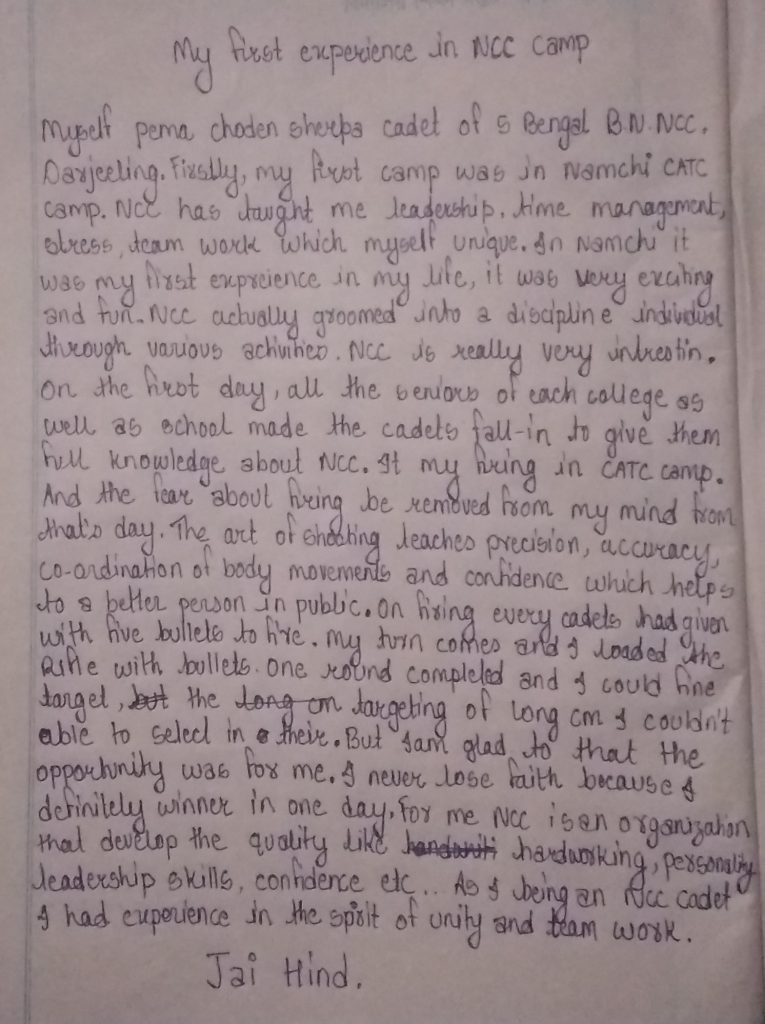 My first experience in NCC camp
Myself pema choden sherpa cadet of 5 Bengal B.N. NCC.
Darjeeling. Firstly, my first camp was in Namchi CATC
camp. NCC has taught me leadership, time management,
stress, team work which myself unique. In Namchi it
was my first expreience in my life, it was very exciting
and fun. NCC actually groomed into a discipline individual
through various activities. NCC is really very intrestin.
On the first day, all the seniors of each college as
well as school made the cadets fall-in to give them
full knowledge about NCC. It my firing in CATC camp.
And the fear about firing be removed from my mind from
that's day. The art of shooting teaches precision, accuracy,
co-ordination of body movements and confidence which helps
to a better person in public. On firing every cadets had given
with five bullets to fire. My turn comes and I loaded the
Rifle with bullets. One round completed and I could fine
target, but the long cm targeting of long cm I couldn't
able to select in their. But Iam glad to that the
opportunity was for me. I never lose faith because I
definitely winner in one day. For me NCC is an organization
that develop the quality like hardworking, personality
leadership skills, confidence etc.. As I being an NCC cadet
I had experience in the spirit of unity and team work.
Jai Hind.